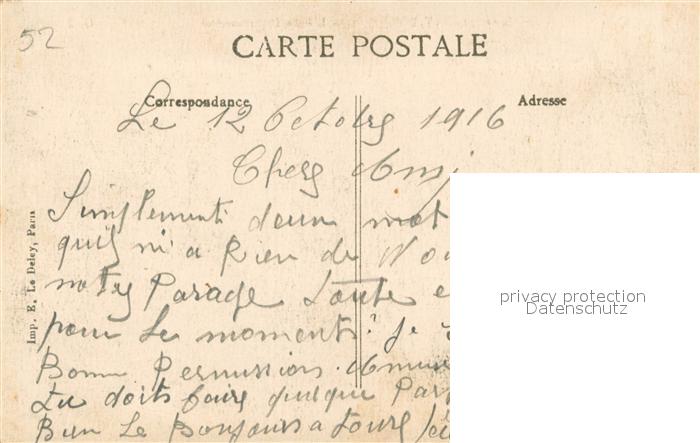 52
CARTE POSTALE
Correspondance
Adresse
Le 12 Octobre 1916
Chers Ami
Simplement deux mot
quil ni a Rien de Nou
notre Parage Santé e
pour Le moment. Je
Bonne Permission. Amuse
Tu doits faire quelque Par
Bien Le Bonjours a tous
Imp. E. Le Deley, Paris
privacy protection
Datenschutz